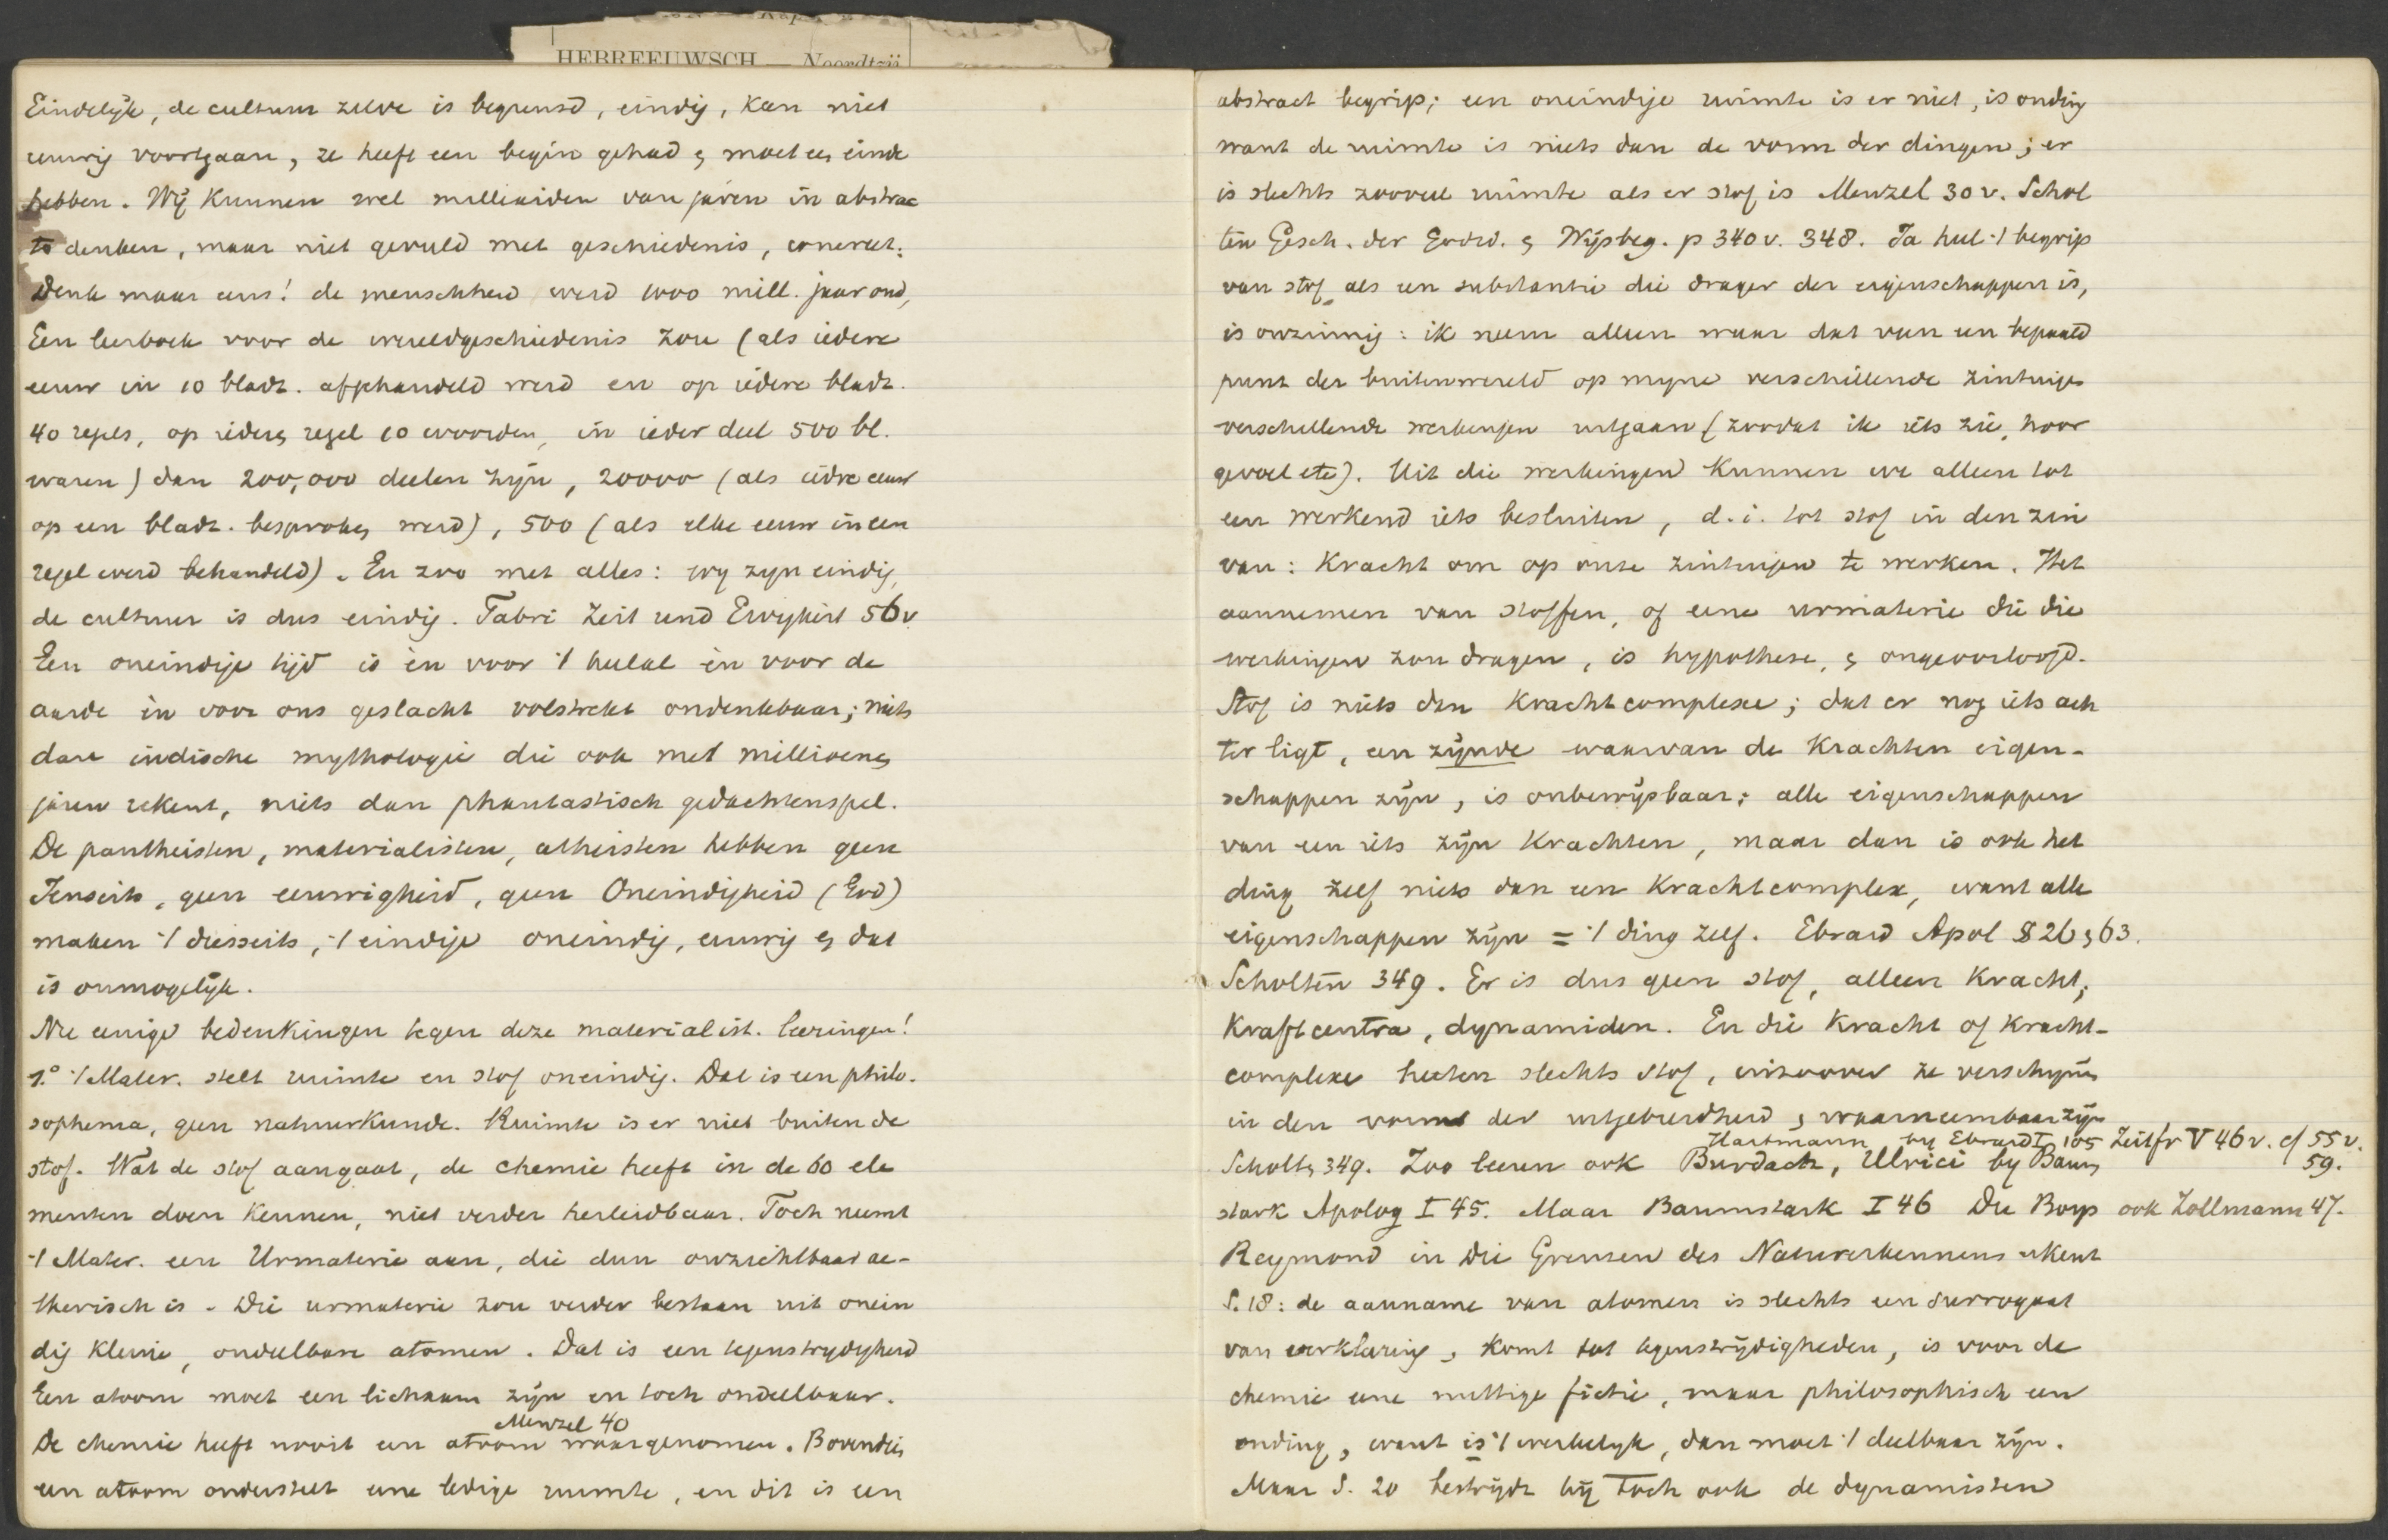 HEBREEUWSCH — Noordtzij
Eindelijk, de cultuur zelve is begrensd, eindig, kan niet
eeuwig voortgaan, ze heeft een begin gehad & moet een einde
hebben. Wij kunnen wel milliarden van jaren in abstrac
to denken, maar niet gevuld met geschiedenis, concreet.
Denk maar eens! de menschheid werd 1000 mill. jaar oud,
Een leerboek voor de wereldgeschiedenis zou (als iedere
eeuw in 10 bladz. afgehandeld werd en op iedere bladz.
40 regels, op iedere regel 10 woorden, in ieder deel 500 bl.
waren) dan 200,000 deelen zijn, 20000 (als iedre eeuw
op een bladz. besproken werd), 500 (als elke eeuw in een
regel werd behandeld). En zoo met alles: wy zyn eindig,
de cultuur is dus eindig. Fabri Zeit und Ewigkeit 56v
Een oneindige tijd is èn voor 't heelal èn voor de
aarde èn voor ons geslacht volstrekt ondenkbaar; niets
dan indische mythologie die ook met millioenen
jaren rekent, niets dan phantastisch gedachtenspel.
De pantheisten, materialisten, atheisten hebben geen
Jenseits, geen eeuwigheid, geen Oneindigheid (God)
maken 't diesseits, 't eindige oneindig, eeuwig & dat
is onmogelijk.
Nu eenige bedenkingen tegen deze materialist. leeringen!
1.° 't Mater. stelt ruimte en stof oneindig. Dat is een philo-
sophema, geen natuurkunde. Ruimte is er niet buiten de
stof. Wat de stof aangaat, de chemie heeft in de 60 ele
menten doen kennen, niet verder herleidbaar. Toch neemt
't Mater. een Urmaterie aan, die dun onzichtbaar ae-
therisch is. Die urmaterie zou verder bestaan uit onein
dig kleine, ondeelbare atomen. Dat is een tegenstrydigheid
Een atoom moet een lichaam zijn en toch ondeelbaar.
Menzel 40
De chemie heeft nooit een atoom waargenomen. Bovendien
een atoom onderstelt eene ledige ruimte, en dit is een
abstract begrip; een oneindige ruimte is er niet, is onding
want de ruimte is niets dan de vorm der dingen; er
is slechts zooveel ruimte als er stof is Menzel 30v. Schol
ten Gesch. der Godsd. & Wijsbeg. p 340v. 348. Ja heel 't begrip
van stof als een substantie die drager der eigenschappen is,
is onzinnig: ik neem alleen waar dat van een bepaald
punt der buitenwereld op myne verschillende zintuigen
verschillende werkingen uitgaan (zoodat ik iets zie, hoor
gevoel etc). Uit die werkingen kunnen we alleen tot
een werkend iets besluiten, d.i. tot stof in den zin
van: Kracht om op onze zintuigen te werken. Het
aannemen van stoffen, of eene urmaterie die die
werkingen zou dragen, is hypothese, & ongeoorloofd.
Stof is niets dan Krachtcomplexe; dat er nog iets ach
ter ligt, een zijnde waarvan de Krachten eigen-
schappen zijn, is onbewijsbaar; alle eigenschappen
van een iets zijn Krachten, maar dan is ook het
ding zelf niets dan een Krachtcomplex, want alle
eigenschappen zijn = 't ding zelf. Ebrard Apol § 26 & 63.
Scholten 349. Er is dus geen stof, alleen Kracht,
Kraftcentra, dynamiden. En die Kracht of Kracht-
complexe heeten slechts stof, inzoover ze verschynen
in den vorm der uitgebreidheid & waarneembaar zijn
Hartmann by Ebrard I 105 Zeitfr V 46v. cf 55v.
Scholten 349. Zoo leeren ook Burdach, Ulrici by Baum 59.
stark Apolog I 45. Maar Baumstark I 46 Du Boys ook Zollmann 47.
Reymond in Die Grenzen des Naturerkennens erkent
S. 18: de aanname van atomen is slechts een surrogaat
van verklaring, komt tot tegenstrijdigheden, is voor de
chemie eene nuttige fictie, maar philosophisch een
onding, want is 't werkelyk, dan moet 't deelbaar zijn.
Maar S. 20 bestrijdt hij toch ook de dynamisten